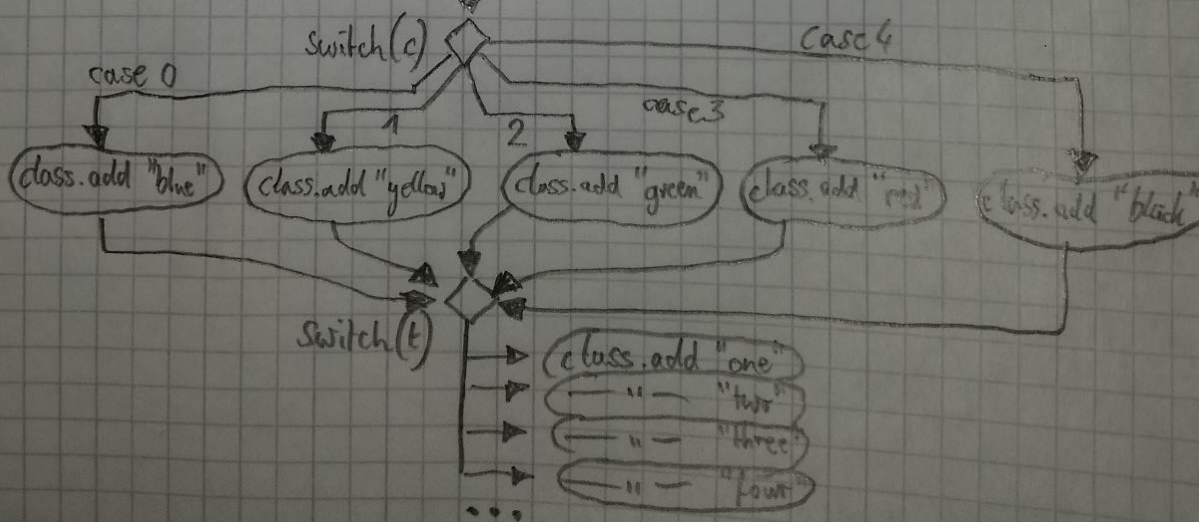 switch(c)
case 4
case 0
1
2
case 3
class.add "blue"
class.add "yellow"
class.add "green"
class.add "red"
class.add "black"
switch(t)
class.add "one"
— " — "two"
— " — "three"
— " — "four"
...